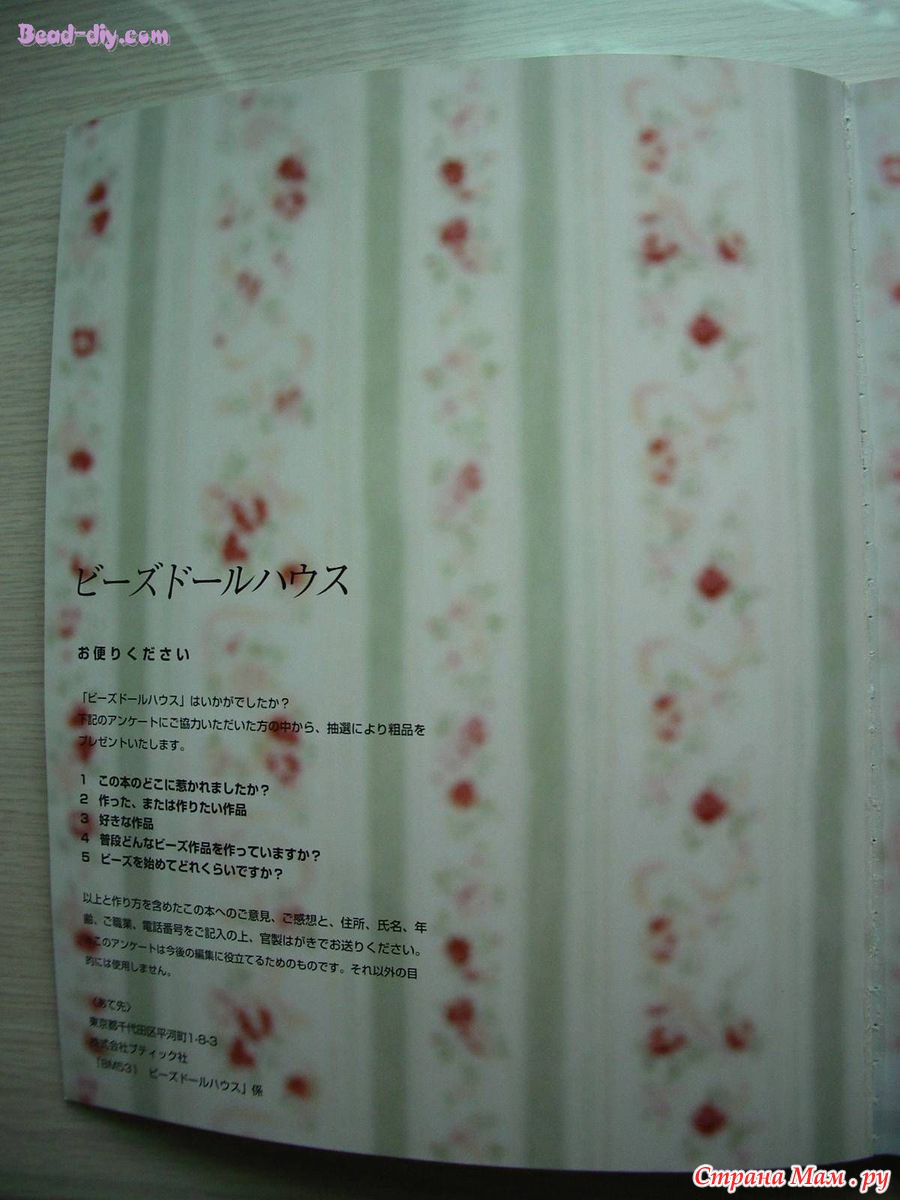 Bead-diy.com
ビーズドールハウス
お便りください
「ビーズドールハウス」はいかがでしたか？
下記のアンケートにご協力いただいた方の中から、抽選により粗品を
プレゼントいたします。
1 この本のどこに惹かれましたか？
2 作った、または作りたい作品
3 好きな作品
4 普段どんなビーズ作品を作っていますか？
5 ビーズを始めてどれくらいですか？
以上と作り方を含めたこの本へのご意見、ご感想と、住所、氏名、年
齢、ご職業、電話番号をご記入の上、官製はがきでお送りください。
※このアンケートは今後の編集に役立てるためのものです。それ以外の目
的には使用しません。
〈あて先〉
東京都千代田区平河町1-8-3
株式会社ブティック社
「BM531 ビーズドールハウス」係
Страна Мам.ру